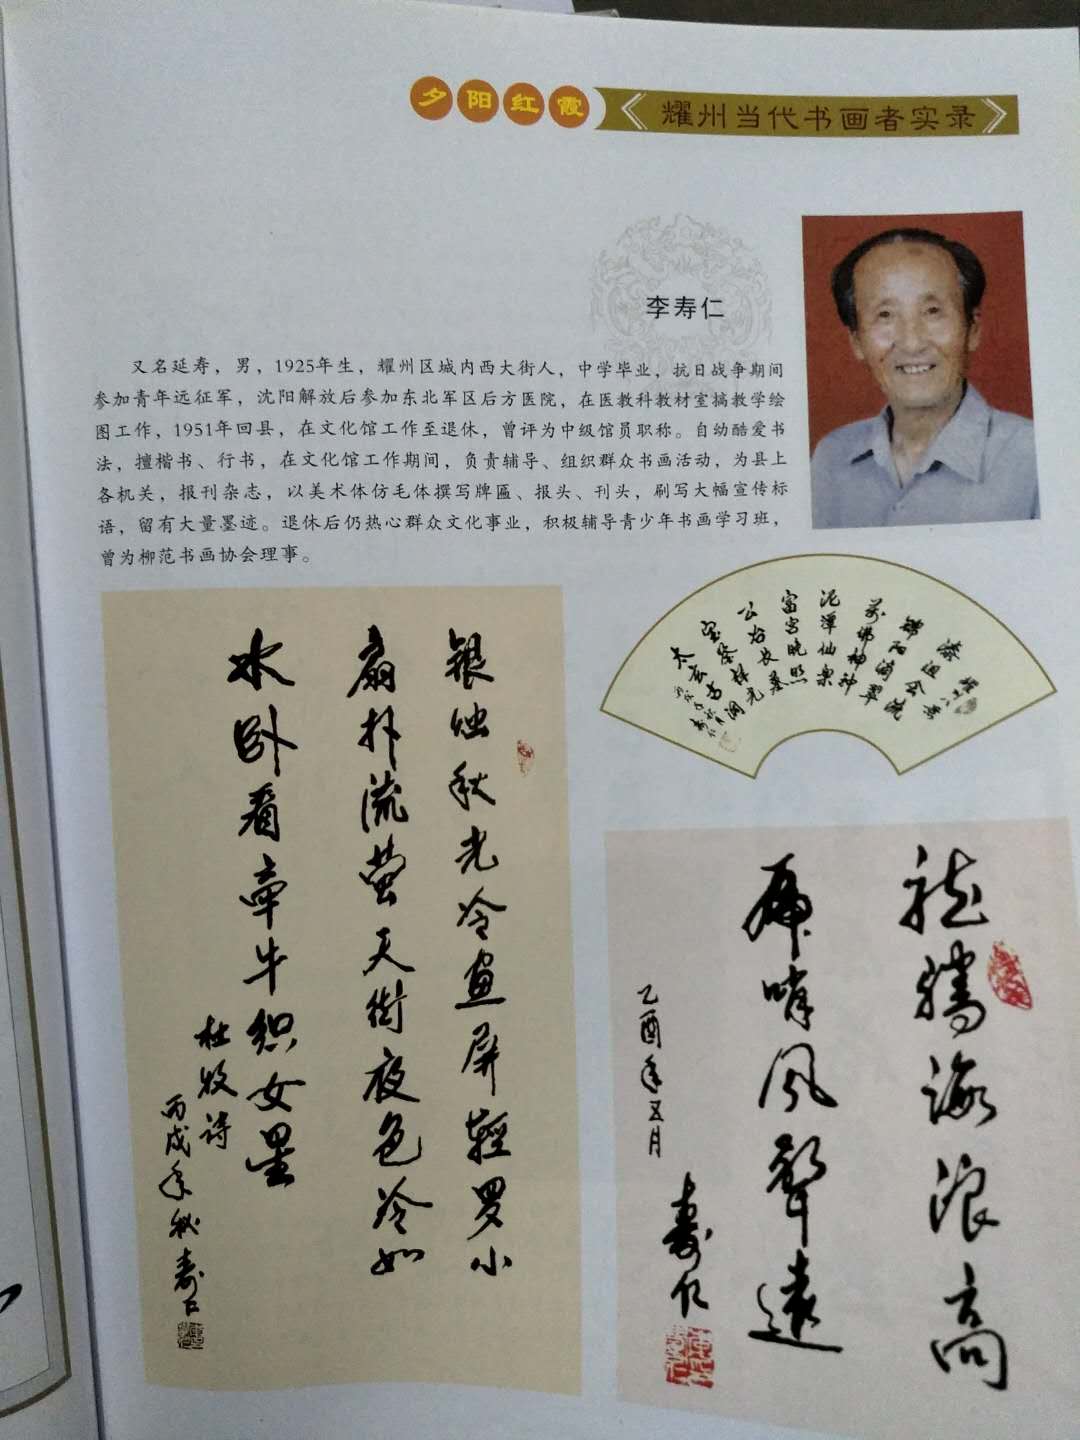 夕阳红霞
《耀州当代书画者实录》
李寿仁
又名延寿，男，1925年生，耀州区城内西大街人，中学毕业，抗日战争期间
参加青年远征军，沈阳解放后参加东北军区后方医院，在医教科教材室搞教学绘
图工作，1951年回县，在文化馆工作至退休，曾评为中级馆员职称。自幼酷爱书
法，擅楷书、行书，在文化馆工作期间，负责辅导、组织群众书画活动，为县上
各机关，报刊杂志，以美术体仿毛体撰写牌匾、报头、刊头，刷写大幅宣传标
语，留有大量墨迹。退休后仍热心群众文化事业，积极辅导青少年书画学习班，
曾为柳范书画协会理事。
锦阳涵翠
泥潭仙泉
宫晓照
公谷长墓
银烛秋光冷画屏轻罗小
扇扑流萤天街夜色冷如
水卧看牵牛织女星
杜牧诗
丙戌年秋寿仁
龙腾海浪高
虎啸风声远
乙酉年五月
寿仁